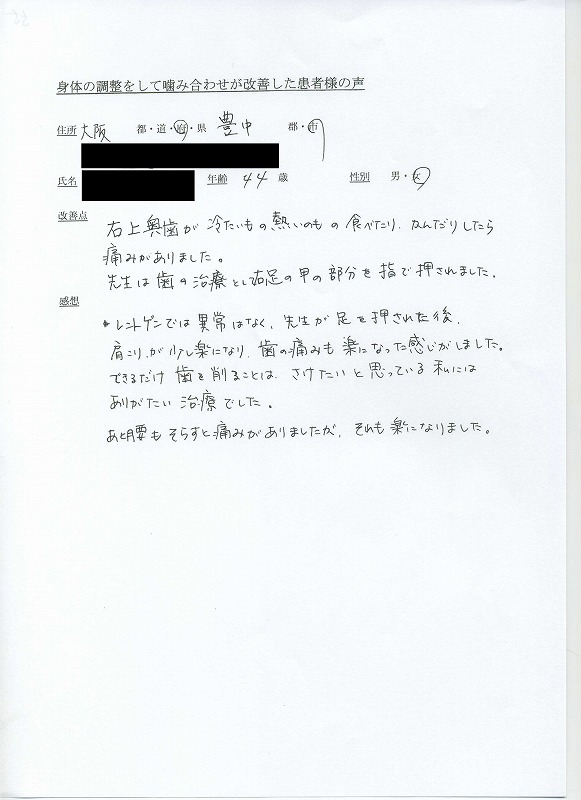 身体の調整をして噛み合わせが改善した患者様の声
住所 大阪 都・道・府・県 豊中 郡・市
氏名 年齢 44 歳 性別 男・女
改善点
右上奥歯が冷たいもの熱いのもの食べたり、かんだりしたら
痛みがありました。
先生は歯の治療として右足の甲の部分を指で押されました。
感想
レントゲンでは異常はなく、先生が足を押された後、
肩こりが少し楽になり、歯の痛みも楽になった感じがしました。
できるだけ歯を削ることは、さけたいと思っている私には
ありがたい治療でした。
あと腰もそらすと痛みがありましたが、それも楽になりました。